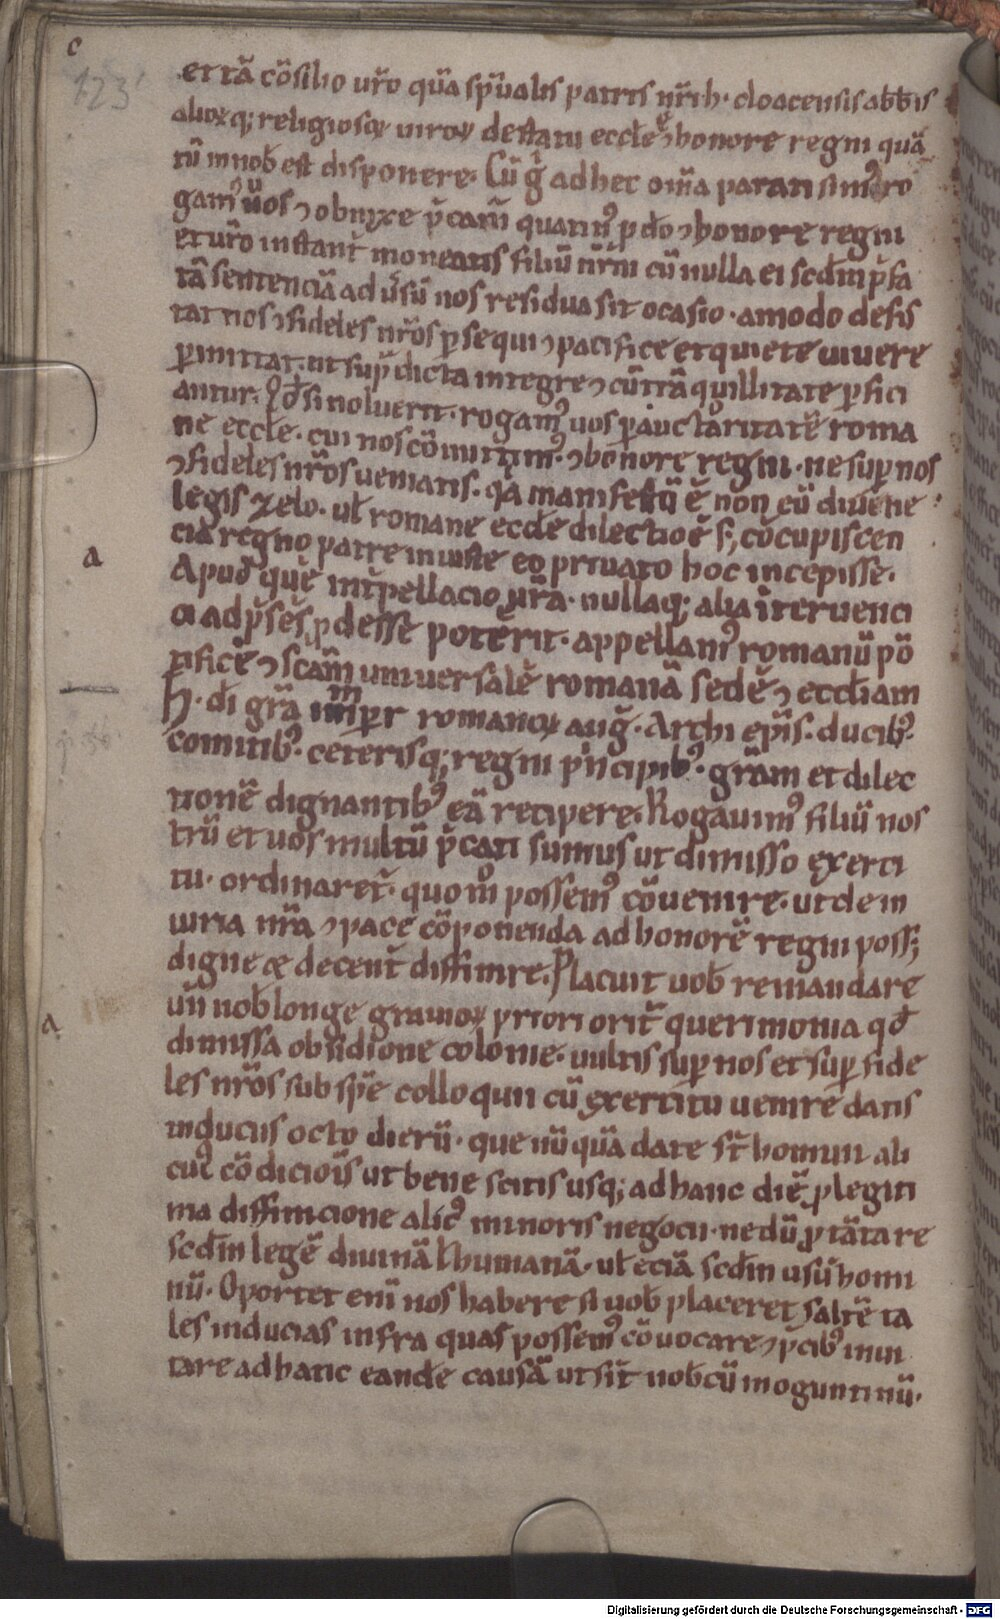 c
123'
et tā cōsilio uro quā spūalis patris nr̄i h. cloacensis abb̄is
alioꝝq; religiosoꝝ uiroꝝ de statu eccłe ⁊ honore regni quā
tū in nob̄ est disponere. Cū ḡ ad hec om̄ia parati simꝰ ro
gamꝰ uos ⁊ obnixe p̄cam̄ quatinꝰ p̱ do ⁊ honore regni
et uro instant̄ moneatis filiū nr̄m cū nulla ei scd̄m p̄fa
tā sentenciā aduersū nos residua sit ocasio. amodo desis
tat nos ⁊ fideles nr̄os ꝑsequi ⁊ pacifice et quiete uiuere
ꝑmittat. ut sup̄dicta integre ⁊ cū trāquillitate ꝑfici
antur. Qd̄ si noluerit. rogamꝰ uos ꝑ auctoritatē roma
ne eccłe. cui nos cōmittimꝰ. ⁊ honore regni. ne suꝑ nos
⁊ fideles nr̄os ueniatis. qa manifestū ē non eū diuine
legis zelo. uł romane eccłe dilectioē s; cōcupiscen
cia regno patre iniuste eo priuato hoc incepisse.
Apud quē int̄pellacio ura. nullaq; alia īteruenci
o ad p̄sēs ꝓdesse poterit. appellamꝰ romanū pō
tificē ⁊ scām uniuersalē romanā sedē ⁊ eccłiam
H. di grā imꝑr romanoꝝ auḡ. Archiep̄is. ducibꝰ.
comitibꝰ. ceterisq; regni p̄ncipibꝰ. grām et dilec
tionē dignantibꝰ eā recipere. Rogauimꝰ filiū nos
trū et uos multū p̄cati sumus ut dimisso exerci
tu. ordinaret̄. quom̊ possemꝰ cōuenire. ut de in
iuria nr̄a ⁊ pace cōponenda ad honorē regni poss;
digne æ decent̄ diffinire. Placuit uob̄ remandare
un̄ nob̄ longe grauioꝝ priori orit̄ querimonia qd̄
dimissa obsidione colonie. uultis suꝑ nos et suꝑ fide
les nr̄os sub spē colloquii cū exercitu uenire datis
inducus octo dierū. que nūquā date st̄ homini ali
cui cōdicioīs ut bene scitis usq; ad hanc diē ꝓ legiti
ma diffinicione alicꝰ minoris negocii. nedū ꝓ tā tare
scd̄m legē diuinā ł humanā. uł eciā scd̄m usū homi
nū. Oportet enī nos habere si uob̄ placeret saltē ta
les inducias infra quas possemꝰ cōuocare ⁊ p̄cibꝰ inui
tare ad hanc eandē causā ut sit nob̄cū moguntinū.
a
a
Digitalisierung gefördert durch die Deutsche Forschungsgemeinschaft - DFG